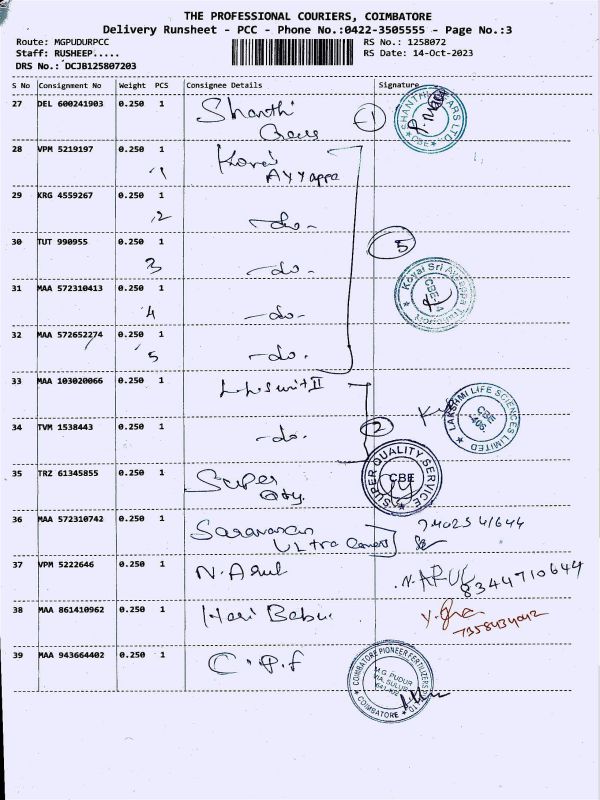 THE PROFESSIONAL COURIERS, COIMBATORE
Delivery Runsheet - PCC - Phone No.:0422-3505555 - Page No.:3
Route: MGPUDURPCC RS No.: 1258072
Staff: RUSHEEP..... RS Date: 14-Oct-2023
DRS No.: DCJB125807203
S No Consignment No Weight PCS Consignee Details Signature
27 DEL 600241903 0.250 1 Shanthi 1
28 VPM 5219197 0.250 1 Kovai
Ayyappa
1
29 KRG 4559267 0.250 1
2 -do-
30 TUT 990955 0.250 1 5
3 -do-
Kovai Sri Ayyappa Transport
CBE-4
31 MAA 572310413 0.250 1
4 -do-
32 MAA 572652274 0.250 1
5 -do-
33 MAA 103020066 0.250 1 unit II
LAKSHMI LIFE SCIENCES LIMITED
CBE
-406.
34 TVM 1538443 0.250 1 -do- 2
35 TRZ 61345855 0.250 1 Super
Qty.
SUPER QUALITY SERVICE
CBE
36 MAA 572310742 0.250 1 Saravanan
Ultra
37 VPM 5222646 0.250 1 N. Arul N. ARUL
8344710644
38 MAA 861410962 0.250 1 Hari Babu
7358434042
39 MAA 943664402 0.250 1 C.P.f
COIMBATORE PIONEER FERTILIZERS
M.G. PUDUR
VIA. SULUR
COIMBATORE